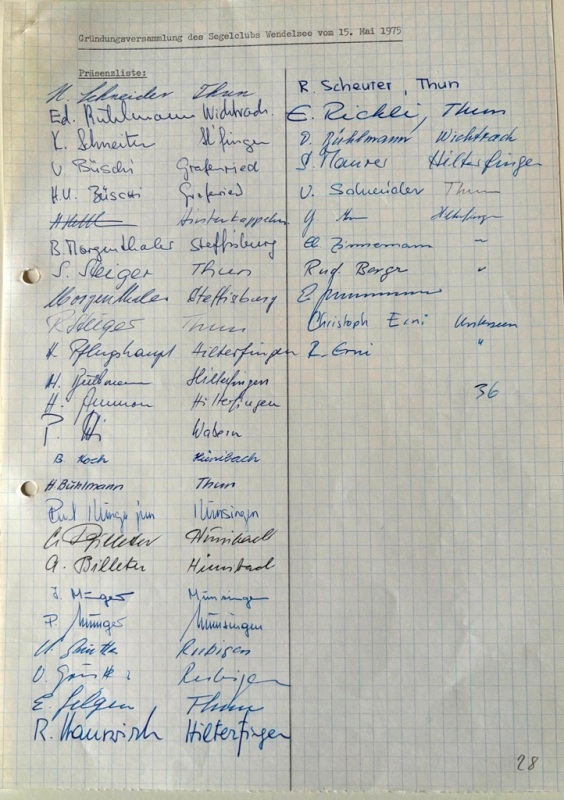 Gründungsversammlung des Segelclubs Wendelsee vom 15. Mai 1975
Präsenzliste:
H. Schneider Thun
Ed. Bühlmann Wichtrach
K. Schneiter Hilfingen
U Büschi Grafenried
H.U. Büschi Grafenried
Hinterkappelen
B. Morgenthaler Steffisburg
S. Steiger Thun
Morgenthaler Steffisburg
R Steiger Thun
H. Pflugshaupt Hilterfingen
H. Bühlmann Hilterfingen
H. Ammon Hilterfingen
P. Wabern
B. Koch Hünibach
H Bühlmann Thun
jun Münsingen
Billeter Hünibach
A. Billeter Hünibach
J. Münger Münsingen
P. Münger Münsingen
Rubigen
Rubigen
E. Thun
R. Hauswirth Hilterfingen
R. Scheurer, Thun
E. Rickli, Thun
D. Bühlmann Wichtrach
S. Maurer Hilterfingen
U. Schneider Thun
Hilterfingen
Zimmermann "
Rud. Berger "
E.
Christoph Erni Unterseen
R. Erni "
36
28